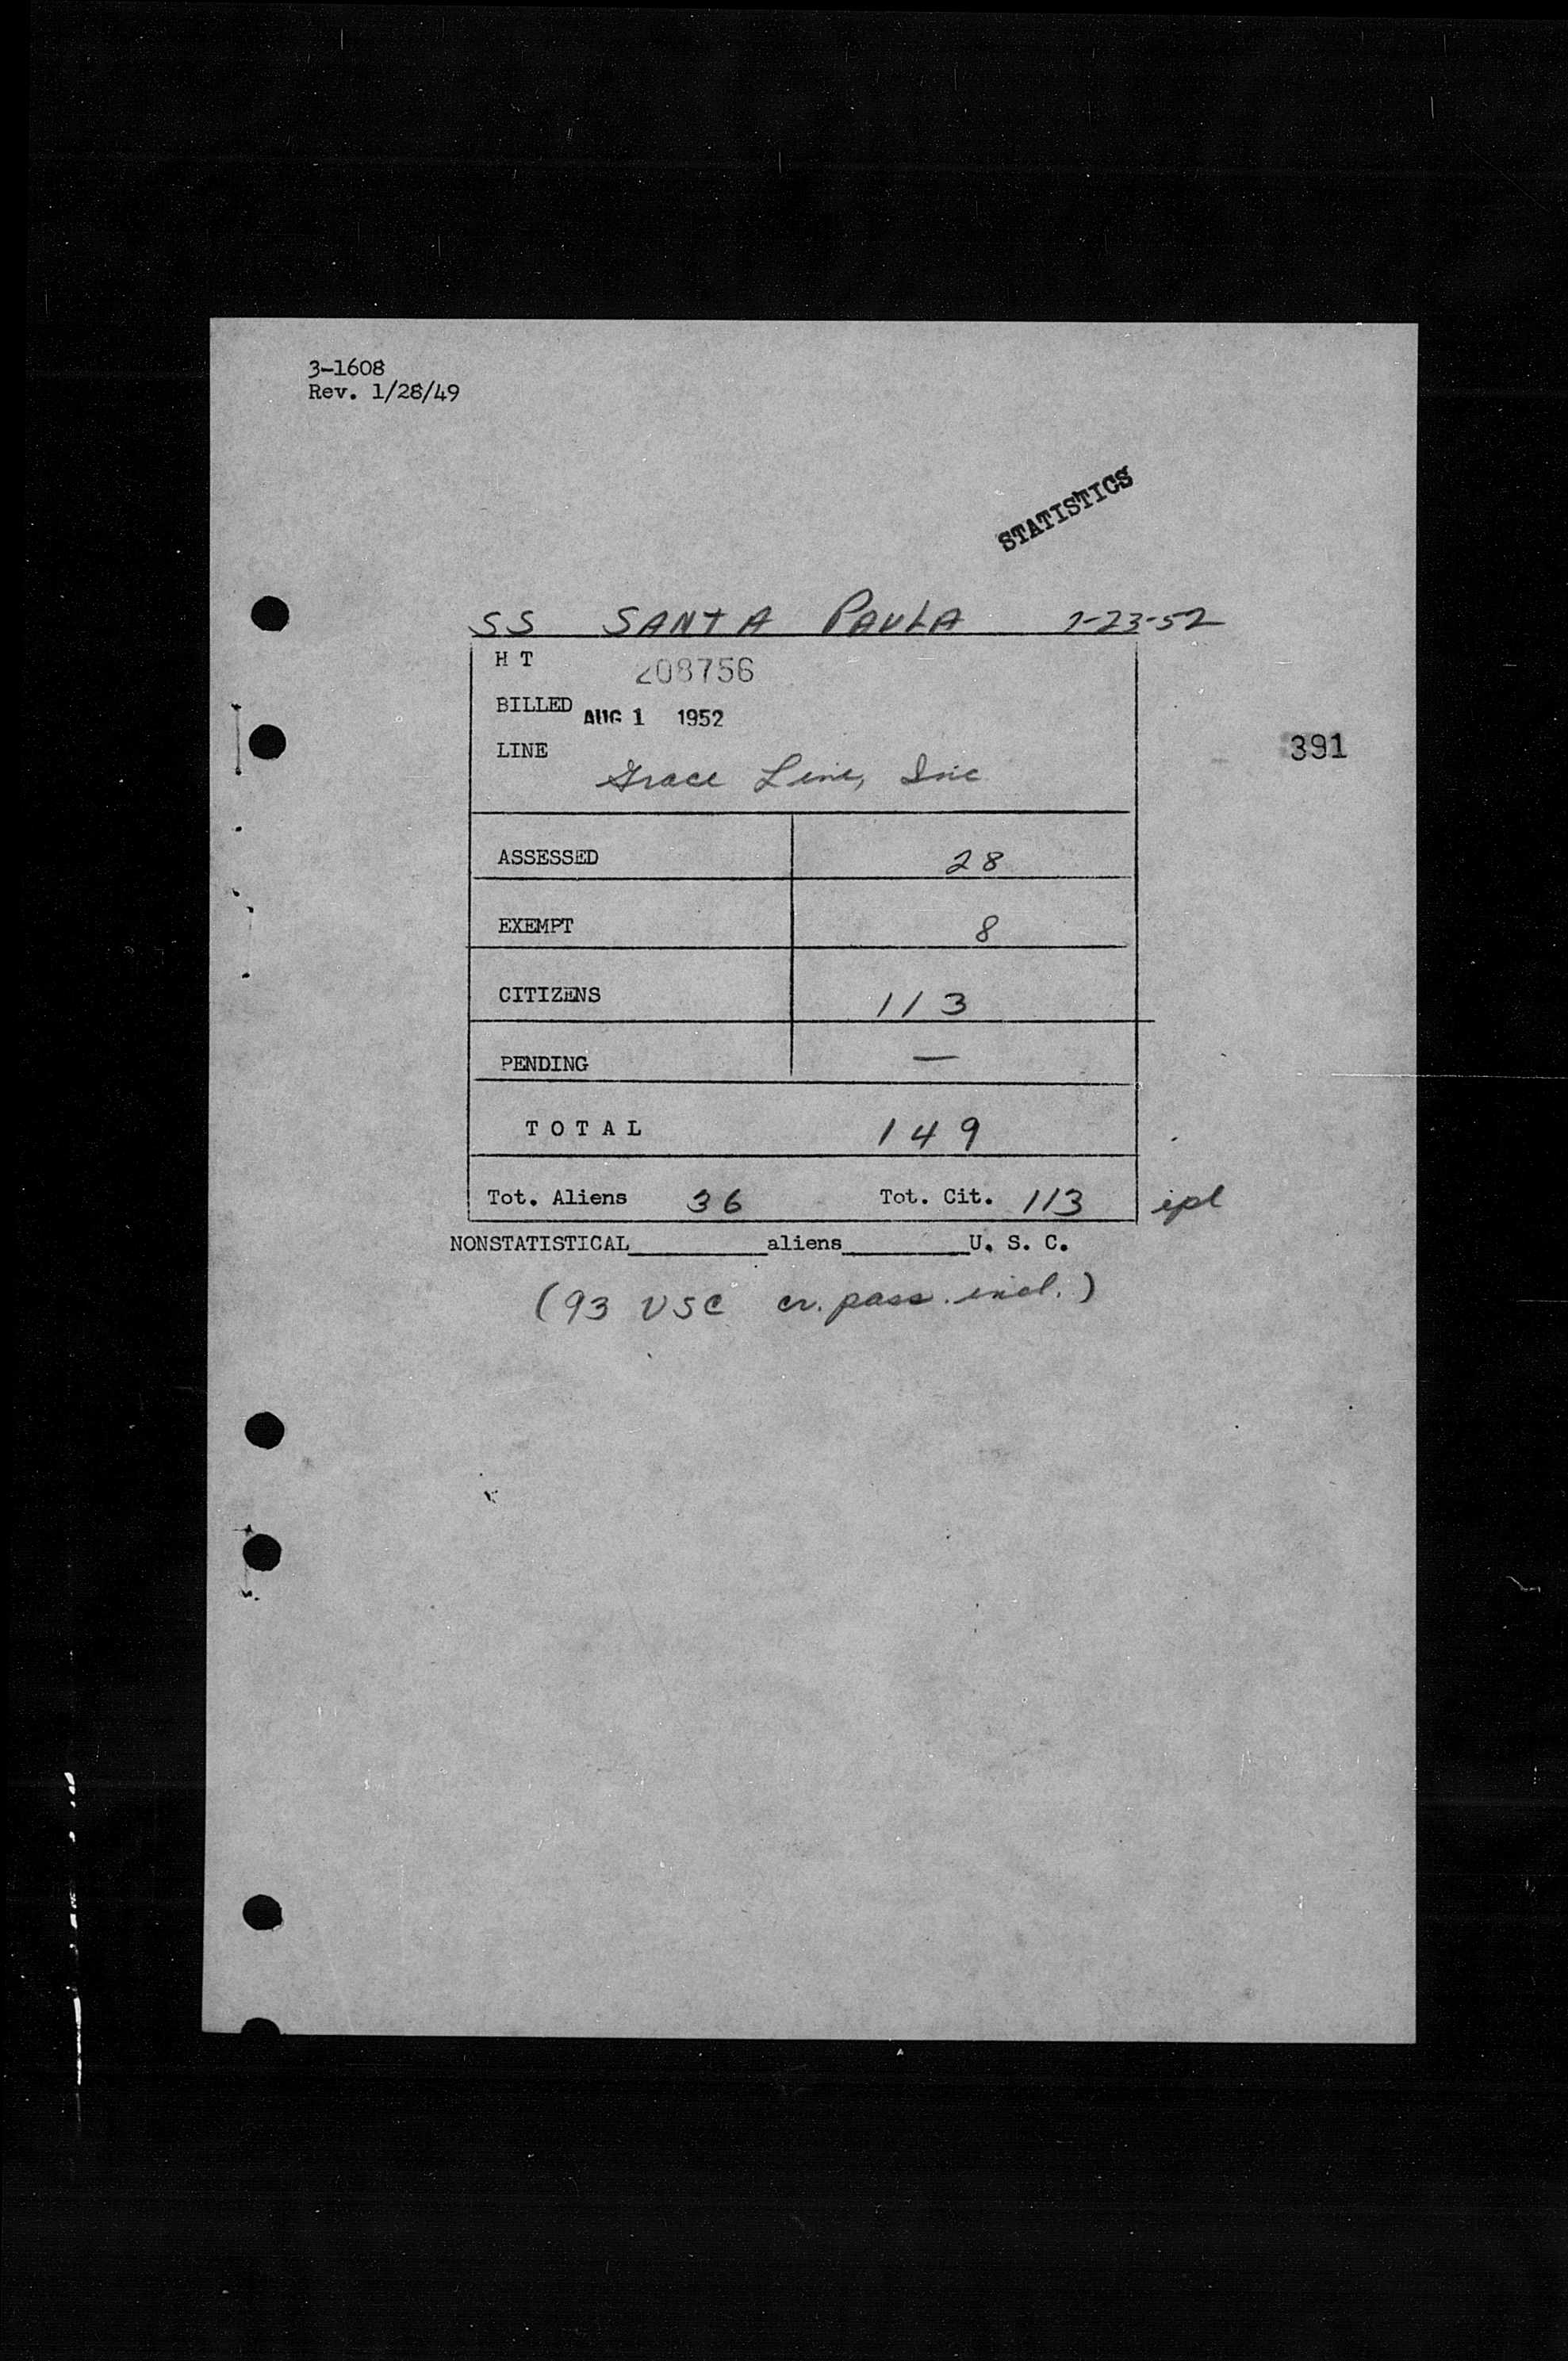 3-1608
Rev. 1/28/49
STATISTICS
SS SANTA PAULA 7-23-52
H T 208756
BILLED AUG 1 1952
LINE
391
Grace Line, Inc
ASSESSED 28
EXEMPT 8
CITIZENS 113
PENDING —
TOTAL 149
Tot. Aliens 36 Tot. Cit. 113
NONSTATISTICAL__________aliens_________U. S. C.
(93 USC cr. pass. incl.)